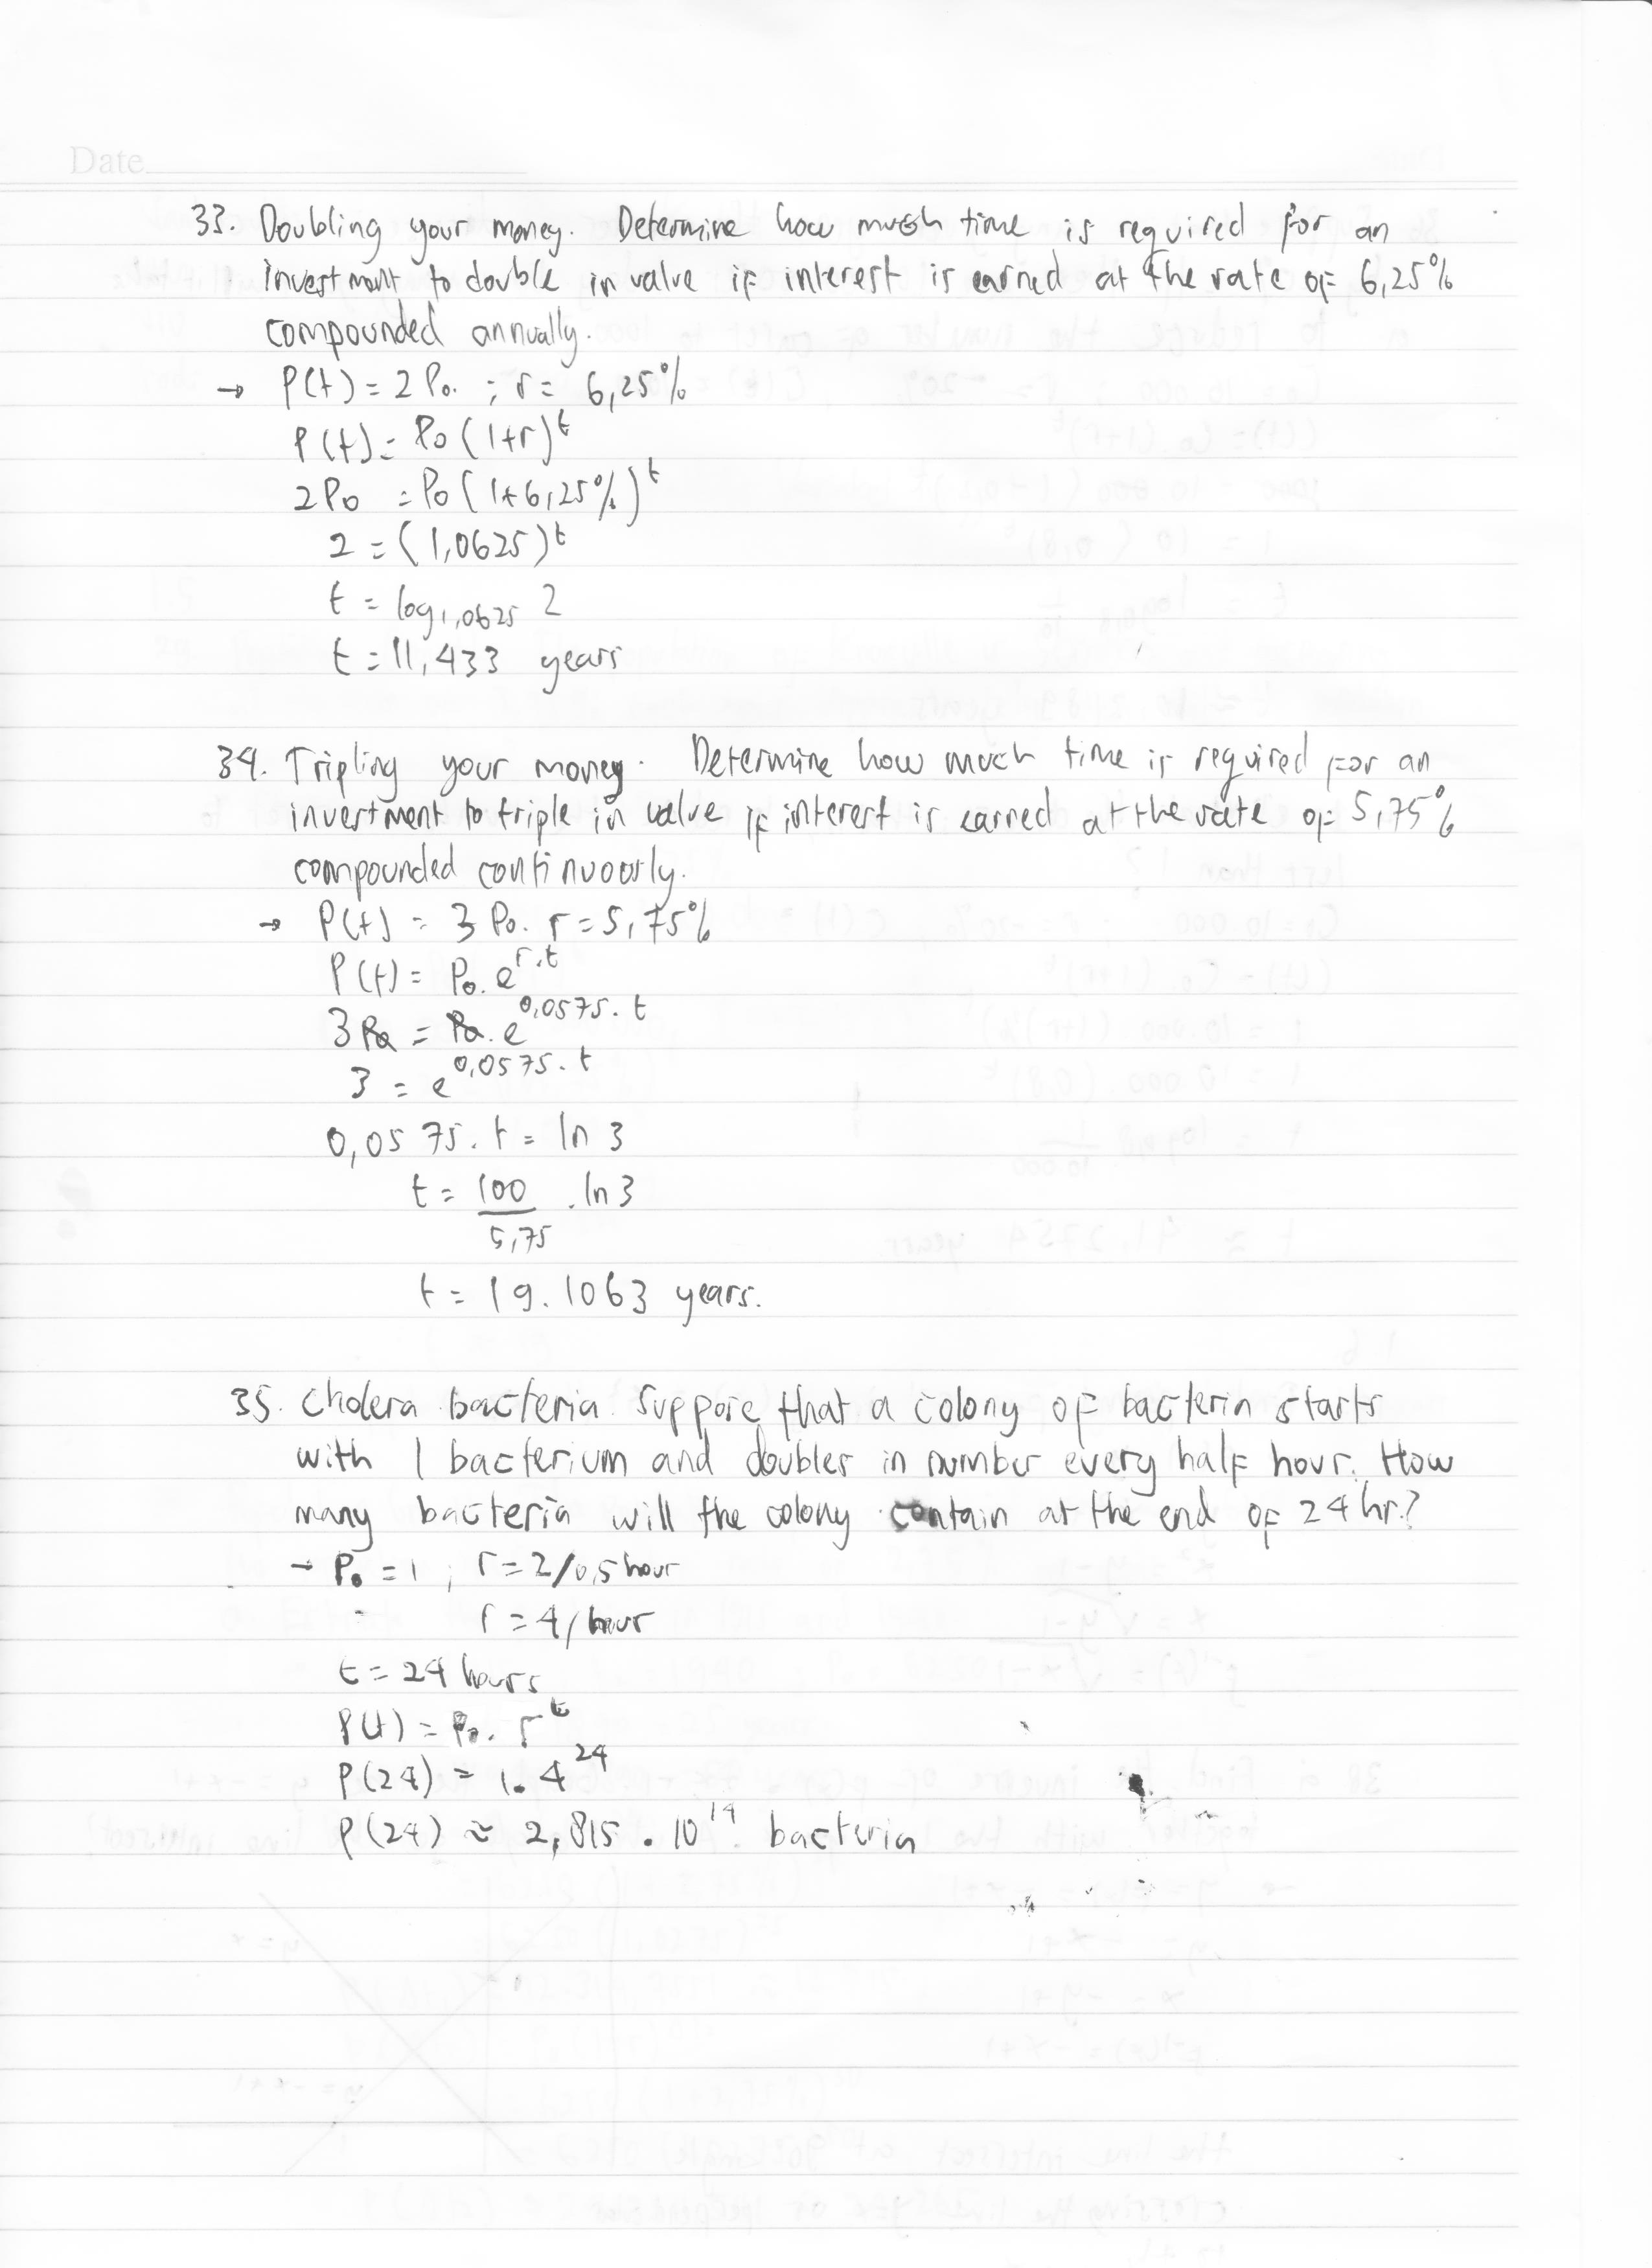 Date
33. Doubling your money. Determine how much time is required for an
investment to double in value if interest is earned at the rate of 6,25%
compounded annually.
→ P(t) = 2 P0. ; r = 6,25%
P(t) = P0 (1+r)^t
2P0 = P0 (1+6,25%)^t
2 = (1,0625)^t
t = log1,0625 2
t = 11,433 years
34. Tripling your money. Determine how much time is required for an
investment to triple in value if interest is earned at the rate of 5,75%
compounded continuously.
→ P(t) = 3 P0. r = 5,75%
P(t) = P0. e^r.t
3 P0 = P0. e^0,0575. t
3 = e^0,0575. t
0,0575. t = ln 3
t = 100/5,75 . ln 3
t = 19.1063 years.
35. Cholera bacteria. Suppose that a colony of bacteria starts
with 1 bacterium and doubles in number every half hour. How
many bacteria will the colony contain at the end of 24 hr.?
→ P0 = 1 ; r = 2/0,5 hour
r = 4/hour
t = 24 hours
P(t) = P0. r^t
P(24) = 1. 4^24
P(24) ≈ 2,815 . 10^14. bacteria